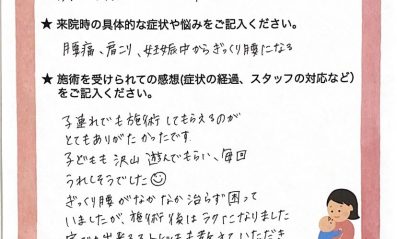 ★ 来院時の具体的な症状や悩みをご記入ください。
腰痛、肩こり、妊娠中からぎっくり腰になる
★ 施術を受けられての感想(症状の経過、スタッフの対応など)
をご記入ください。
子連れでも施術してもらえるのが
とてもありがたかったです
子どもも沢山遊んでもらい、毎回
うれしそうでした
ぎっくり腰がなかなか治らず困って
いましたが、施術後はラクになりました